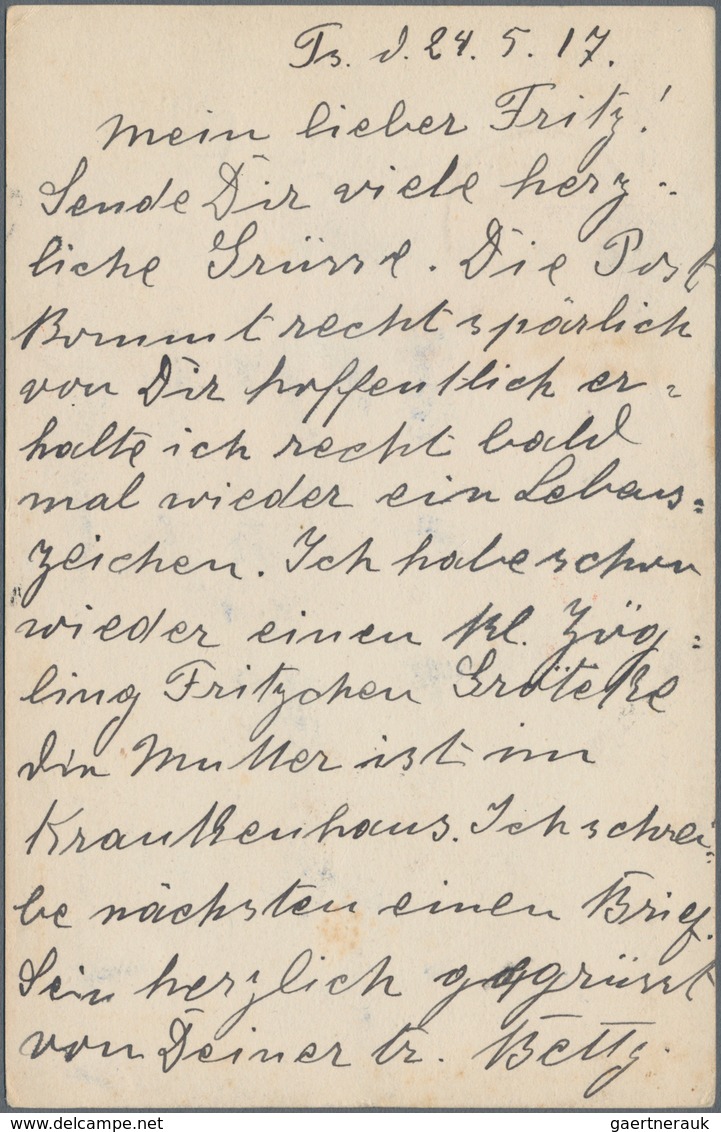 Ts. d. 24. 5. 17.
Mein lieber Fritz!
Sende Dir viele herz-
liche Grüsse. Die Post
kommt recht spärlich
von Dir hoffentlich er=
halte ich recht bald
mal wieder ein Lebens=
zeichen. Ich habe schon
wieder einen kl. Zög=
ling Fritzchen Gröteke
die Mutter ist im
Krankenhaus. Ich schrei=
be nächsten einen Brief.
Sei herzlich gegrüsst
von Deiner tr. Betty.
delcampe.net
gaertnerauk